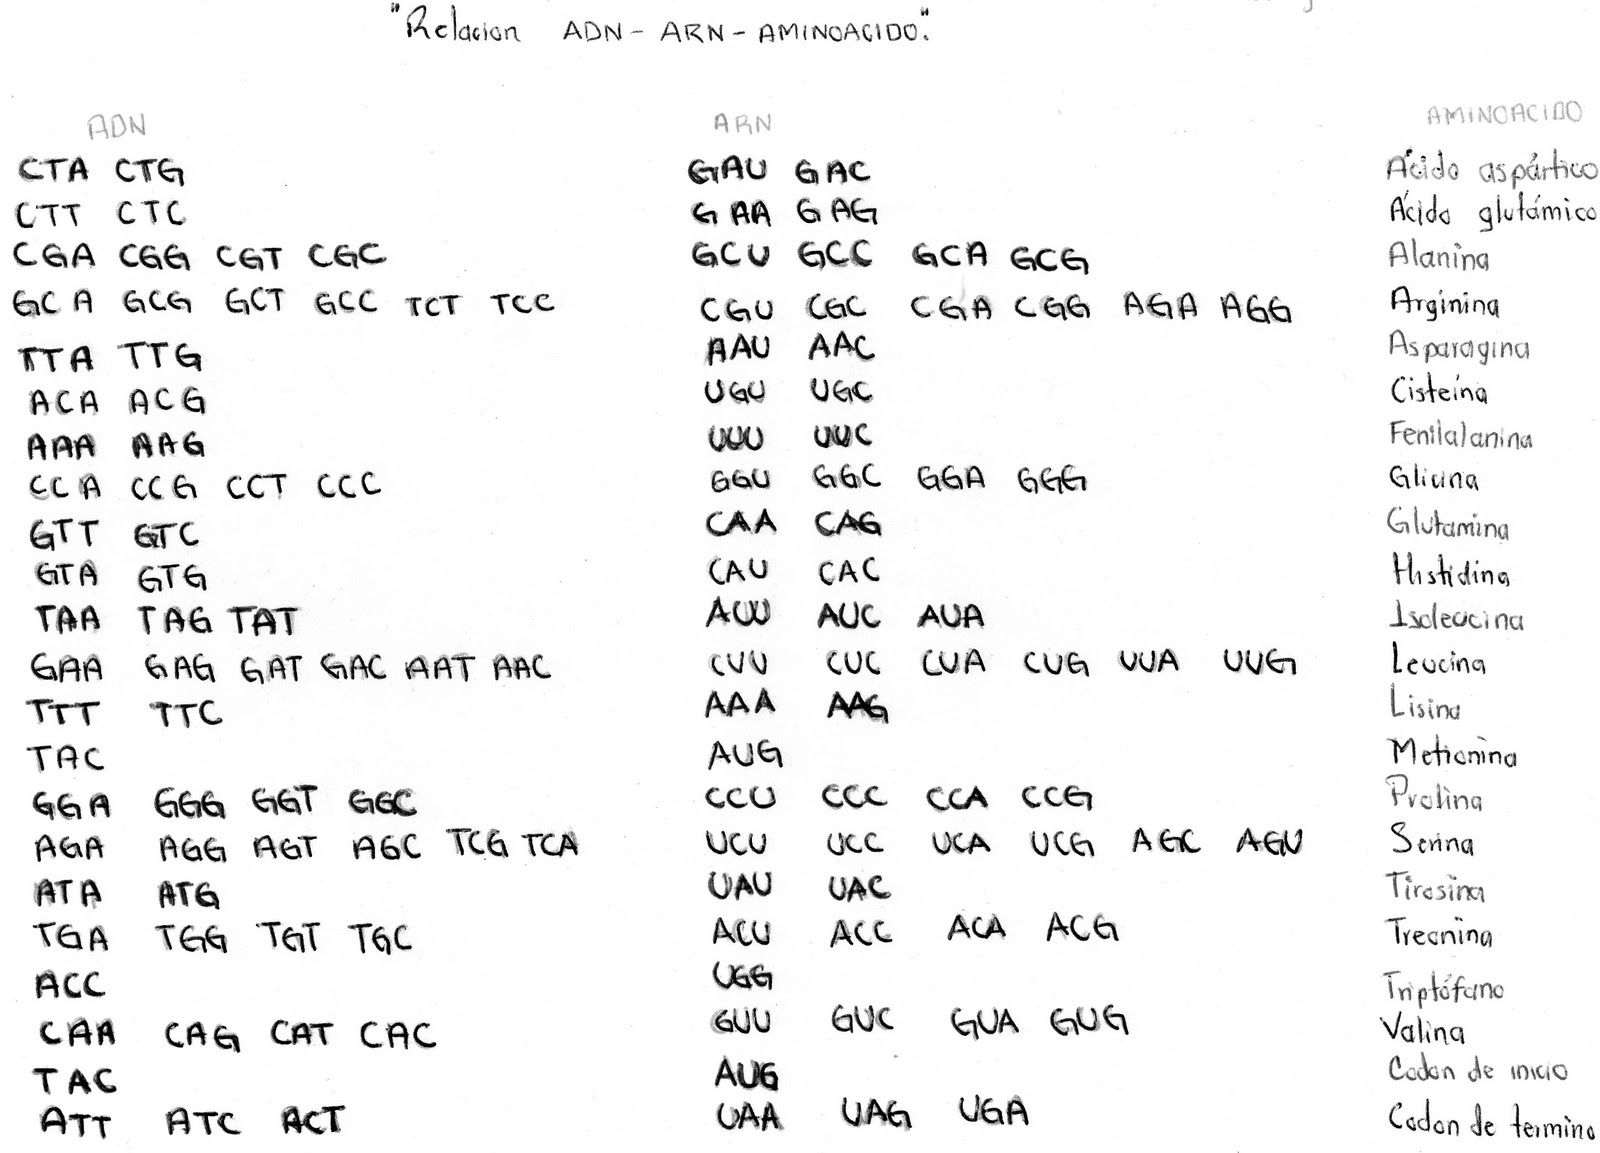 "Relacion ADN - ARN - AMINOACIDO."
ADN ARN AMINOACIDO
CTA CTG GAU GAC Ácido aspártico
CTT CTC GAA GAG Ácido glutámico
CGA CGG CGT CGC GCU GCC GCA GCG Alanina
GCA GCG GCT GCC TCT TCC CGU CGC CGA CGG AGA AGG Arginina
TTA TTG AAU AAC Asparagina
ACA ACG UGU UGC Cisteína
AAA AAG UUU UUC Fenilalanina
CCA CCG CCT CCC GGU GGC GGA GGG Glicina
GTT GTC CAA CAG Glutamina
GTA GTG CAU CAC Histidina
TAA TAG TAT AUU AUC AUA Isoleucina
GAA GAG GAT GAC AAT AAC CUU CUC CUA CUG UUA UUG Leucina
TTT TTC AAA AAG Lisina
TAC AUG Metionina
GGA GGG GGT GGC CCU CCC CCA CCG Prolina
AGA AGG AGT AGC TCG TCA UCU UCC UCA UCG AGC AGU Serina
ATA ATG UAU UAC Tirosina
TGA TGG TGT TGC ACU ACC ACA ACG Treonina
ACC UGG Triptófano
CAA CAG CAT CAC GUU GUC GUA GUG Valina
TAC AUG Codon de inicio
ATT ATC ACT UAA UAG UGA Codon de termino